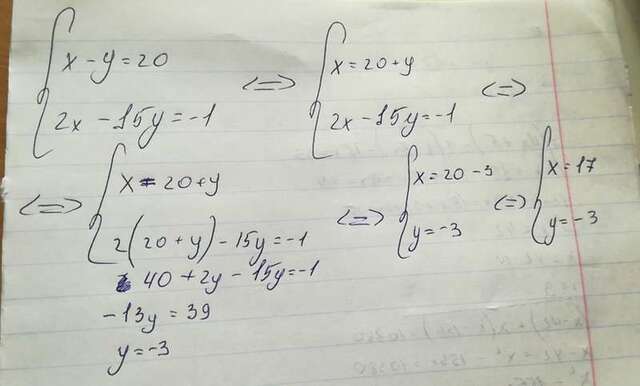 { x - y = 20
2x - 15y = -1 <=> { x = 20 + y
2x - 15y = -1 <=>
<=> { x = 20 + y
2(20 + y) - 15y = -1 <=> { x = 20 - 3
y = -3 <=> { x = 17
y = -3
40 + 2y - 15y = -1
-13y = 39
y = -3